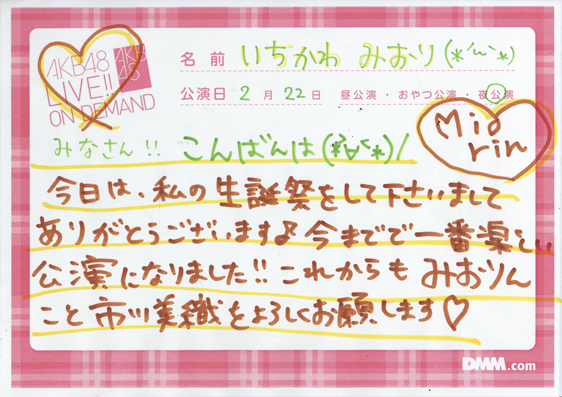 AKB48
LIVE!!
ON DEMAND
AKB
48
名前 いちかわ みおり(*'ω'*)
公演日 2月22日 昼公演・おやつ公演・夜公演
みなさん!! こんばんは(*°∀°*)/
Mio
rin
今日は、私の生誕祭をして下さいまして
ありがとうございます♪今までで一番楽しい
公演になりました!!これからもみおりん
こと市川美織をよろしくお願します♡
DMM.com